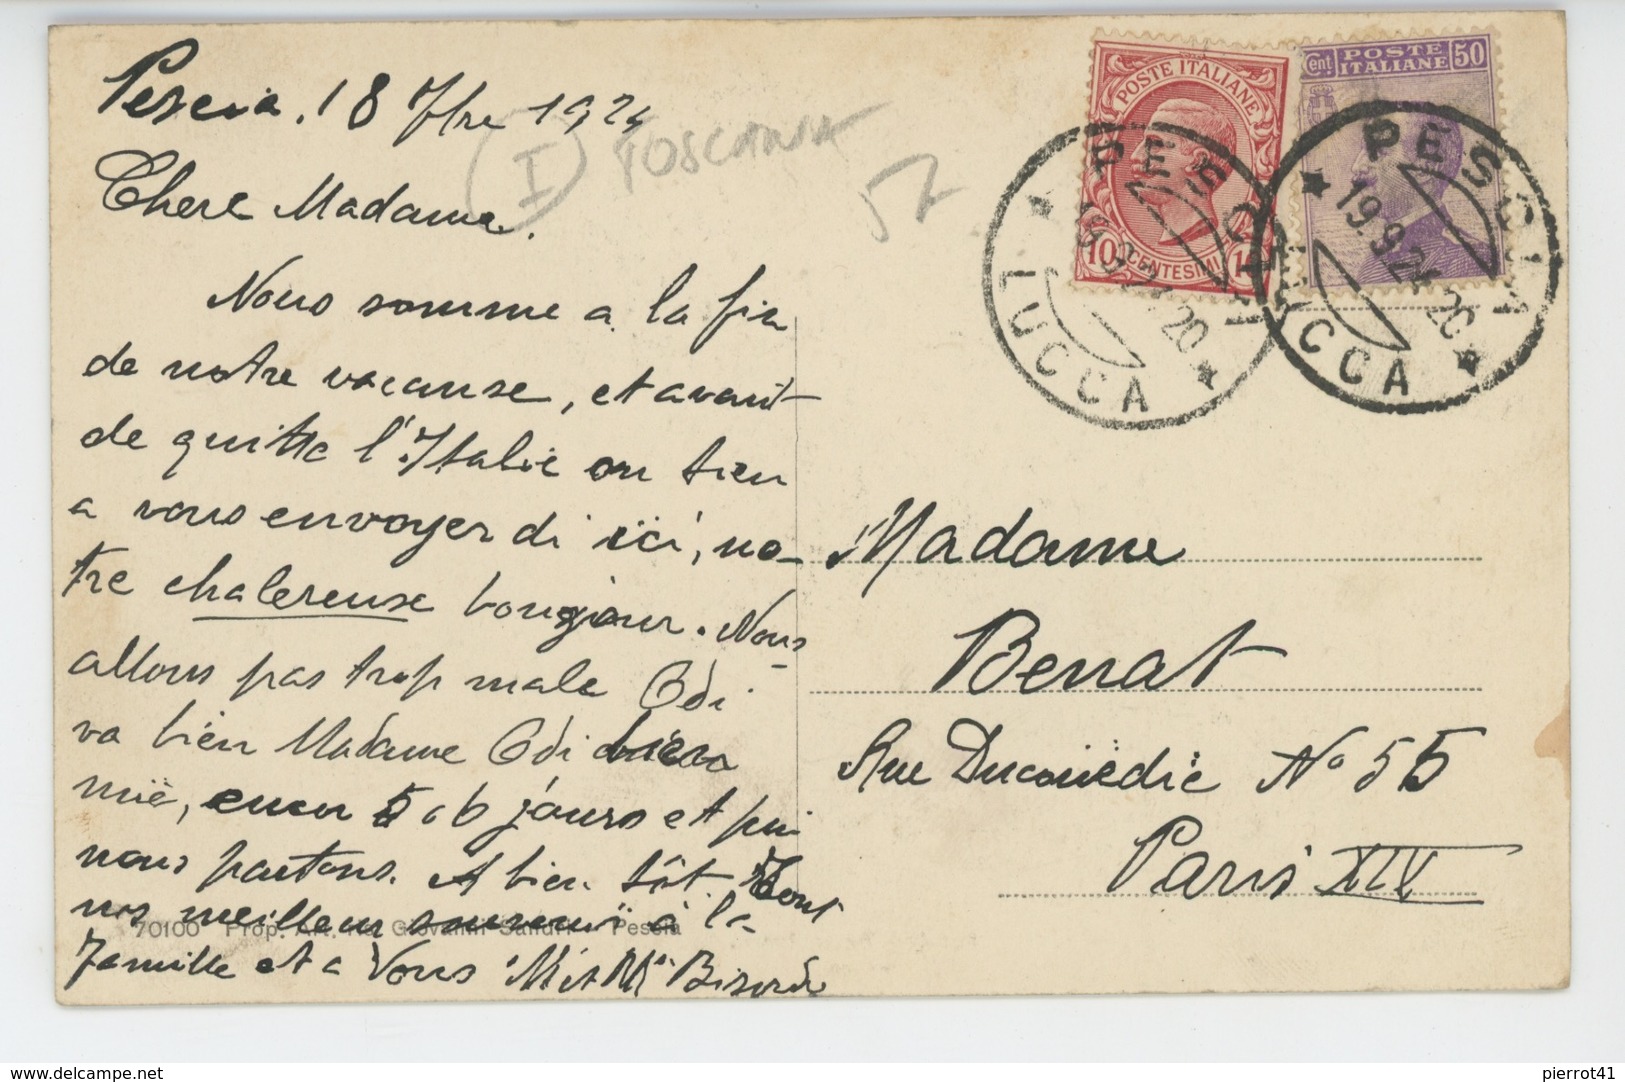 Pescia, 18 7bre 1924
Chere Madame.
Nous somme a la fin
de notre vacanse, et avant
de quitte l'Italie on tien
a vous envoyer di ici, no-
tre chalereuse bongiour. Nous
allons pas trop male Odi
va bien Madame Odi
mië, 5 o 6 jours et pui
nous partons. A bien tôt. Tout
nos meilleur à la
famille et a Vous M et M
(I) TOSCANA
52
POSTE ITALIANE
10 CENTESIMI 10
Cent POSTE 50
ITALIANE
PESCIA
19.9.24 20
LUCCA
PESCIA
19.9.24 20
LUCCA
Madame
Benat
Rue Ducouëdic No 55
Paris XIV
70100 Prop. Art. Giovanni Pescia
delcampe.net
pierrot41